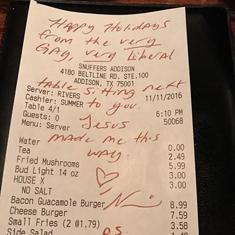 Happy Holidays
from the very
Gay, very Liberal
SNUFFERS ADDISON
4180 BELTLINE RD. STE.100
ADDISON, TX 75001
table sitting next
Server: RIVERS 11/11/2016
Cashier: SUMMER to you.
Table 4/1 6:10 PM
Guests: 0 50068
Menu: Server Jesus
made me this
Water 0.00
way.
Tea 2.49
Fried Mushrooms 5.99
Bud Light 14 oz 3.00
HOUSE X 3.00
NO SALT
Bacon Guacamole Burger 8.99
Cheese Burger 7.59
Small Fries (2 @1.79) 3.58
Side Salad